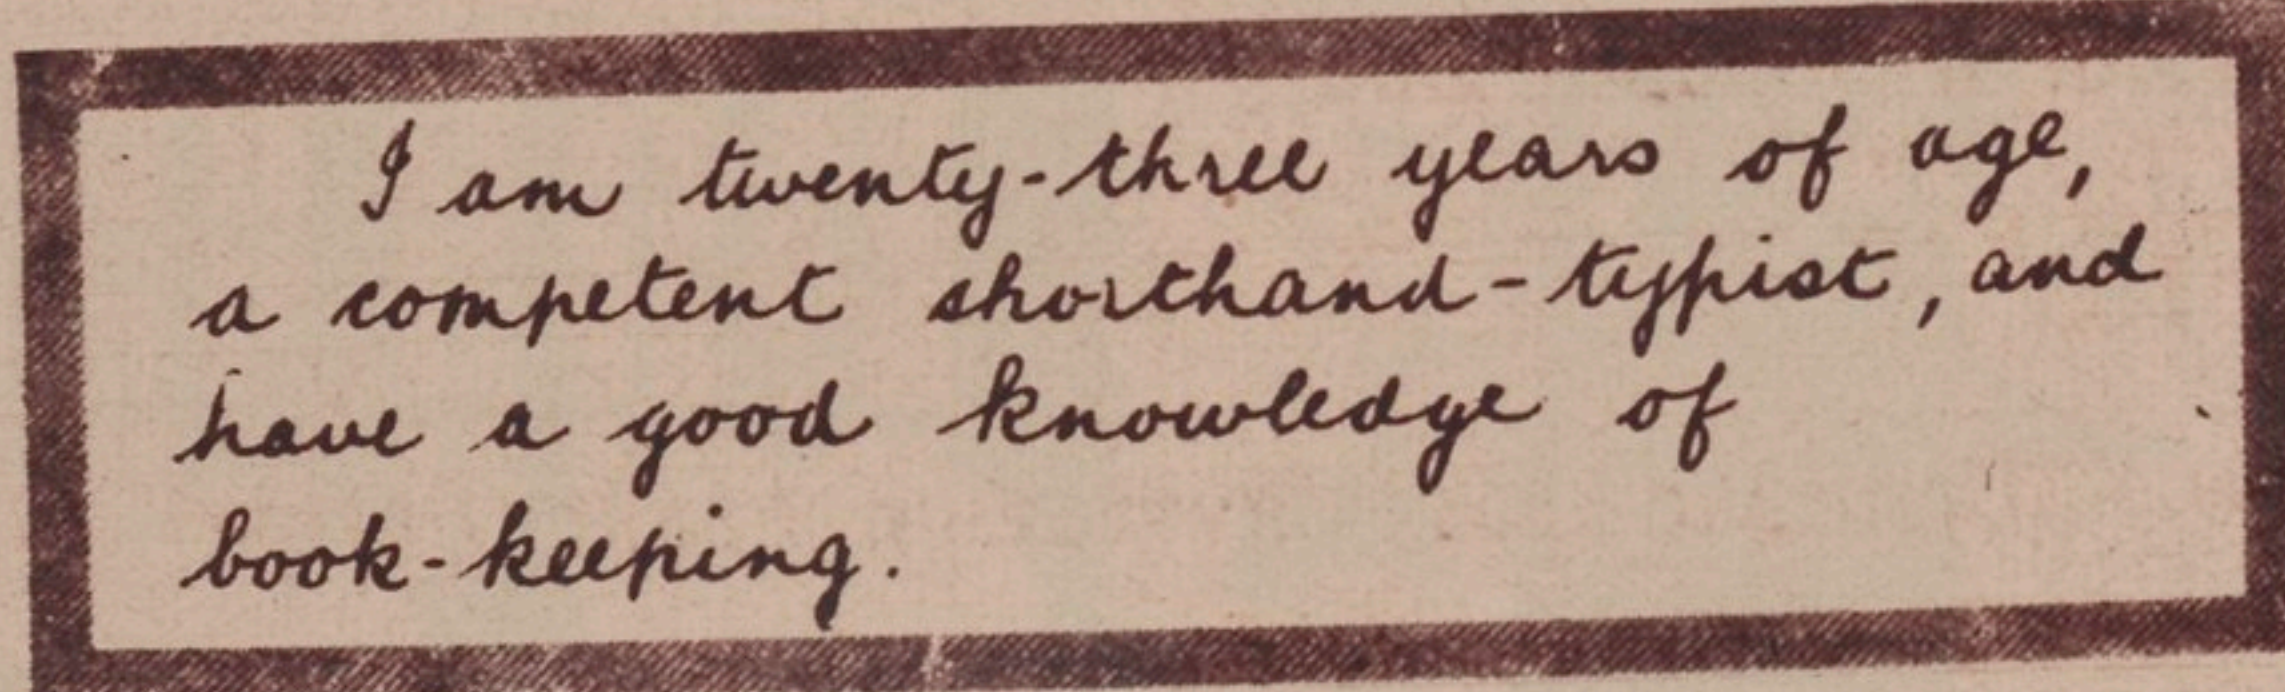 I am twenty-three years of age,
a competent shorthand-typist, and
have a good knowledge of
book-keeping.